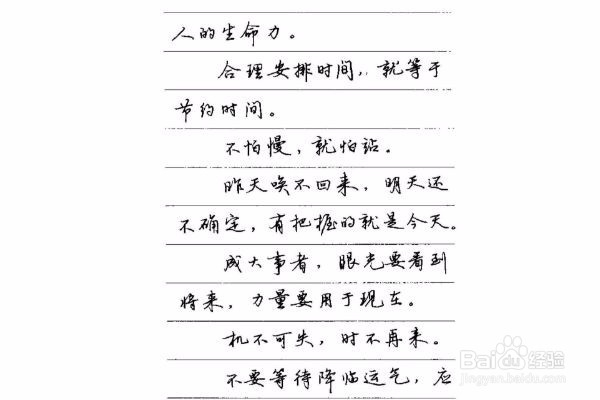 人的生命力。
合理安排时间，就等于
节约时间。
不怕慢，就怕站。
昨天唤不回来，明天还
不确定，有把握的就是今天。
成大事者，眼光要看到
将来，力量要用于现在。
机不可失，时不再来。
不要等待降临运气，应
Bai du 经验
jingyan.baidu.com